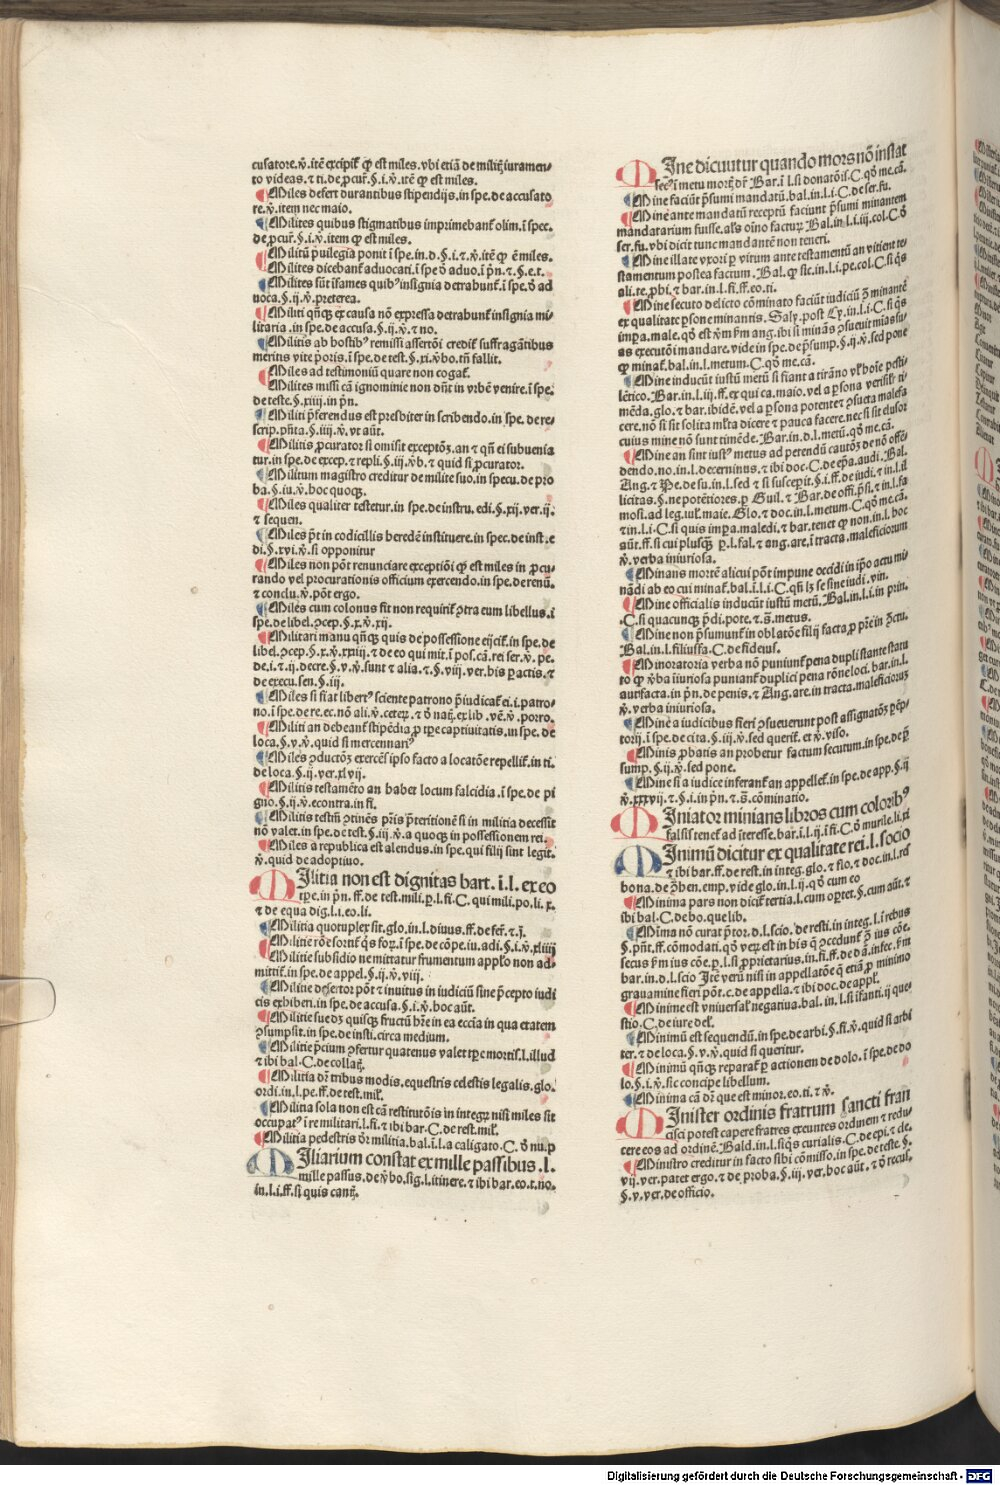 cusatore.v̇.itē excipit̄ ꝙ est miles.vbi etiā de militꝫ iuramen⸗
to videas.⁊ ti.de ꝓcur̄.§.i.v̇.itē ꝙ est miles.
Miles defert durantibus stipendijs.in spe.de accusato
re.v̇.item nec maio.
Milites quibus stigmatibus imprimebant̄ olim.i spec.
de ꝓcur̄.§.i.v̇.item ꝙ est miles.
Militū p̄uilegia ponit ī spe.in.d.§.i.⁊.v̇.itē ꝙ ē miles.
Milites dicebant̄ aduocati.ī spe.ō aduo.ī pn̄.⁊.§.e.t.
Milites sūt īfames quibꝰ insignia detrahunt̄.ī spe.ō ad
uoca.§.ij.v̇.preterea.
Militi qn̄qꝫ ex causa nō expressa detrahunt̄ insignia mi⸗
litaria.in spe.de accusa.§.ij.v̇.⁊ no.
Militis ab hostibꝰ remissi assertōi credit̄ suffragātibus
meritis vite p̄oris.ī spe.de test.§.xi.v̇bo.tn̄ fallit.
Miles ad testimoniū quare non cogat̄.
Milites missi cā ignominie non dn̄t in vrbē venire.ī spe.
de teste.§.xiiij.in pn̄.
Militi p̄ferendus est presbiter in scribendo.in spe.de re⸗
scrip.pn̄ta.§.iiij.v̇.vt aūt.
Militis ꝓcurator si omisit exceptōꝫ.an ⁊ qn̄ ei subuenia
tur.in spe.de excep.⁊ repli.§.iij.v̇b.⁊ quid si ꝓcurator.
Militum magistro creditur de milite suo.in specu.de pro
ba.§.iu.v̇.hoc quoqꝫ.
Miles qualiter testetur.in spe.de instru.edi.§.xij.ver.ij.
⁊ sequen.
Miles pt̄ in codicillis heredē instituere.in spec.de inst.e
di.§.xvi.v̇.si opponitur
Miles non pōt renunciare exceptiōi ꝙ est miles in ꝓcu⸗
rando vel procurationis officium exercendo.in spe.de renū.
⁊ conclu.v̇.pōt ergo.
Miles cum colonus sit non requirit̄ ꝯtra eum libellus.ī
spe.de libel.ꝯcep.§.x.v̇.xij.
Militari manu qn̄qꝫ quis de possessione eijcit̄.in spe.de
libel.ꝯcep.§.x.v̇.xxiij.⁊ de eo qui mit.ī pos.cā.rei ser.v̇.pe.
de.i.⁊.ij.decre.§.v.v̇.sunt ⁊ alia.⁊.§.viij.ver.his peractis.⁊
de execu.sen.§.iij.
Miles si fiat libertꝰ sciente patrono p̄iudicat̄ ei.i.patro⸗
no.ī spe.de re.ec.nō ali.v̇.ceterꝫ.⁊ ō natꝫ.ex lib.vē.v̇.porro.
Militi an debeant̄ stipēdia ꝓ tꝑe captiuitatis.in spe.de
loca.§.v.v̇.quid si mercennariꝰ
Miles ꝯductōꝫ exercēs ipso facto a locatōe repellit̄.in ti.
de loca.§.ij.ver.xlvij.
Militis testamēto an habet locum falcidia.ī spe.de pi
gno.§.ij.v̇.econtra.in fi.
Militis testm̄ ꝯtinēs pr̄is p̄teritionē si in militia decessit
nō valet.in spe.de test.§.iij.v̇.a quoqꝫ in possessionem rei.
Miles a republica est alendus.in spe.qui filij sint legit.
v̇.quid de adoptiuo.
Militia non est dignitas bart. ī.l. ex eo
tꝑe.in pn̄.ff.de test.mili.ꝑ.l.fi.C.qui mili.po.li.x.
⁊ de equa dig.l.i.eo.li.
Militia quotuplex sit.glo.in.l.diuus.ff.de fer̄.⁊.ꝫ.
Militie rōe sortit̄ qͥs forꝫ.ī spe.de cōpe.iu.adi.§.i.v̇.xliiij
Militie subsidio ne mittatur frumentum applo non ad⸗
mittit̄.in spe.de appel.§.ij.v̇.viij.
Militie desertor pōt ⁊ inuitus in iudiciū sine p̄cepto iudi
cis exhiberi.in spe.de accusa.§.i.v̇.hoc aūt.
Militie suedꝫ quisqꝫ fructū hr̄e in ea eccīa in qua etatem
ꝯsumpsit.in spe.de insti.circa medium.
Militie p̄cium ꝯfertur quatenus valet tꝑe mortis.l.illud
⁊ ibi bal.C.de collatꝫ.
Militia dr̄ tribus modis.equestris celestis legalis.glo.
ordi.in.l.pe.ff.de test.mil̄.
Militia sola non est cā restitutōis in integrꝫ nisi miles sit
occupatꝰ ī re militari.l.fi.⁊ ibi bar.C.de rest.mil̄.
Militia pedestris ōr militia.bal.ī.l.a caligato.C.ō nu.p
Miliarium constat ex mille passibus .l.
mille passus.de v̇bo.sig.l.itinere.⁊ ibi bar.eo.t.no.
in.l.i.ff.si quis cautꝫ.
Mine dicuntur quando mors nō instat
secꝰ ī metu mortꝫ dr̄ Bar.ī l.si donatōis.C.qͦ me.cā.
Mine faciūt p̄sumi mandatū.bal.in.l.i.C.de ser.fu.
Mine ante mandatū receptū faciunt p̄sumi minantem
mandatarium fuisse.als̄ oīno facturꝫ Bal.in l.i.iij.col.C.ō
ser.fu.vbi dicit tunc mandantē non teneri.
Mine illate vxori ꝑ virum ante testamentū an vitient te
stamentum postea factum.Bal.ꝙ sic.in l.i.pe.col.C.si qͥs
ali.te.ꝓhi.⁊ bar.in l.fi.ff.eo.ti.
Mine secuto delicto cōminato faciūt iudiciū ꝯ minantē
ex qualitate ꝑsone minantis.Saly.post Cy.in.l.i.C.si qͥs
impa.male.qͦ est v̄m km̄ ang.ibi si minās ꝯsueuit mias su⸗
as executōi mandare.vide in spe.de p̄sump.§.ij.v̇.sed pone
ꝙ minat̄.bal.in.l.metum.C.qͦ me.cā.
Mine inducūt iustū metū si fiant a tirāno vl̄ hoīe pesti⸗
lētico.Bar.in.l.iij.ff.ex qui ca.maio.vel a ꝑsona verisil̄r ti⸗
mēda.glo.⁊ bar.ibidē.vel a ꝑsona potente ⁊ ꝯsueta malefa
cere.nō si sit solita ml̄ta dicere ⁊ pauca facere.nec si sit dusor
cuius mine nō sunt timēde.Bar.in.d.l.metū.qͦ me.cā.
Mine an sint iustꝰ metus ad petendū cautōꝫ de nō offē⸗
dendo.no.in.l.decernimus.⁊ ibi doc.C.de epa.audi.Bal.
Ang.⁊ Pe.de su.in l.sed ⁊ si susceperit.§.i.ff.de iudi.⁊ in.l.il
licitas.§.ne potētiores.ꝑ Guil.⁊ Bar.de offi.p̄si.⁊ in.l.fa
mosi.ad leg.iul̄.maie.Glo.⁊ doc.in.l.metum.C.qͦ me.cā.
⁊ in.l.i.C.si quis impa.maledi.⁊ bar.tenet ꝙ non.in.l.hoc
aūt.ff.si cui plusqꝫ ꝑ.l.fal.⁊ ang.are.ī tracta.maleficiorum
v̇.verba iniuriosa.
Minans mortē alicui pōt impune occidi in ip̄o actu mi⸗
nādi ab eo cui minat̄.bal.ī.l.i.C.qn̄ lꝫ se sine iudi.vin.
Mine officialis inducūt iustū metū.Bal.in.l.i.in prin.
C.si quacunqꝫ p̄di.pote.⁊.s̄.metus.
Mine non p̄sumunt̄ in oblatōe filij facta ꝓ pr̄e in ꝯctu.
Bal.in.l.filiusfa.C.de fideius.
Minoratoria verba nō puniunt̄ pena dupli stante statu
to ꝙ v̇ba iīuriosa puniant̄ duplici pena rōne loci.bar.in.l.
aut facta.in pn̄.de penis.⁊ Ang.are.in tracta.maleficiorꝫ
v̇.verba iniuriosa.
Mine a iudicibus fieri ꝯsueuerunt post assignatōꝫ ꝑēp⸗
torij.ī spe.de cita.§.iij.v̇.sed querit̄.et v̇.viso.
Minis ꝓbatis an probetur factum secutum.in spe.de p̄
sump.§.ij.v̇.sed pone.
Mine si a iudice inferant̄ an appellet̄.in spe.de app.§.ij
v̇.xxxvij.⁊.§.i.in pn̄.⁊.s̄.cōminatio.
Miniator minians libros cum coloribꝰ
falsis tenet̄ ad īteresse.bar.ī l.ij.ī fi.C.ō murile.li.xi
Minimū dicitur ex qualitate rei.l.socio
⁊ ibi bar.ff.de rest.in integ.glo.⁊ flo.⁊ doc.in.l.res
bona.de ꝯhen.emp.vide glo.in.l.ij.qͦ cum eo
Minima pars non dicit̄ tertia.l.cum oportet.§.cum aūt.⁊
ibi bal.C.de bo.que lib.
Mīma nō curat p̄tor.d.l.scio.de resti.in integ.l.ī rebus
§.pn̄t.ff.cōmodati.qͦ verꝫ est in his q̄ ꝯcedunt̄ ꝯ ius cōe.
secus km̄ ius cōe.ꝑ.l.si ꝓprietarius.in fi.ff.de dā.infec.km̄
bar.in d.l.scio Itē verū nisi in appellatōe q̄ etiā ꝓ minimo
grauamine fieri pōt.c.de appella.⁊ ibi doc.de appl̄.
Minime est vniuersal̄ negatiua.bal.in.l.si īfanti.ij que⸗
stio.C.de iure del̄.
Minimū est sequendū.in spe.de arbi.§.fi.v̇.quid si arbi
ter.⁊ de loca.§.v.v̇.quid si queritur.
Minimū qn̄qꝫ reparat̄ ꝑ actionem de dolo.ī spe.de do
lo.§.i.v̇.sic concipe libellum.
Minima cā dr̄ que est minor.eo.ti.⁊ v̇.
Minister ordinis fratrum sancti fran
cisci potest capere fratres exeuntes ordinem ⁊ redu⸗
cere eos ad ordinē.Bald.in.l.si qͥs curialis.C.de epi.⁊ cle.
Ministro creditur in facto sibi cōmisso.in spe.de teste.§.
vij.ver.patet ergo.⁊ de proba.§.iij.ver.hoc aūt.⁊ ō recus̄.
§.v.ver.de officio.
Digitalisierung gefördert durch die Deutsche Forschungsgemeinschaft - DFG